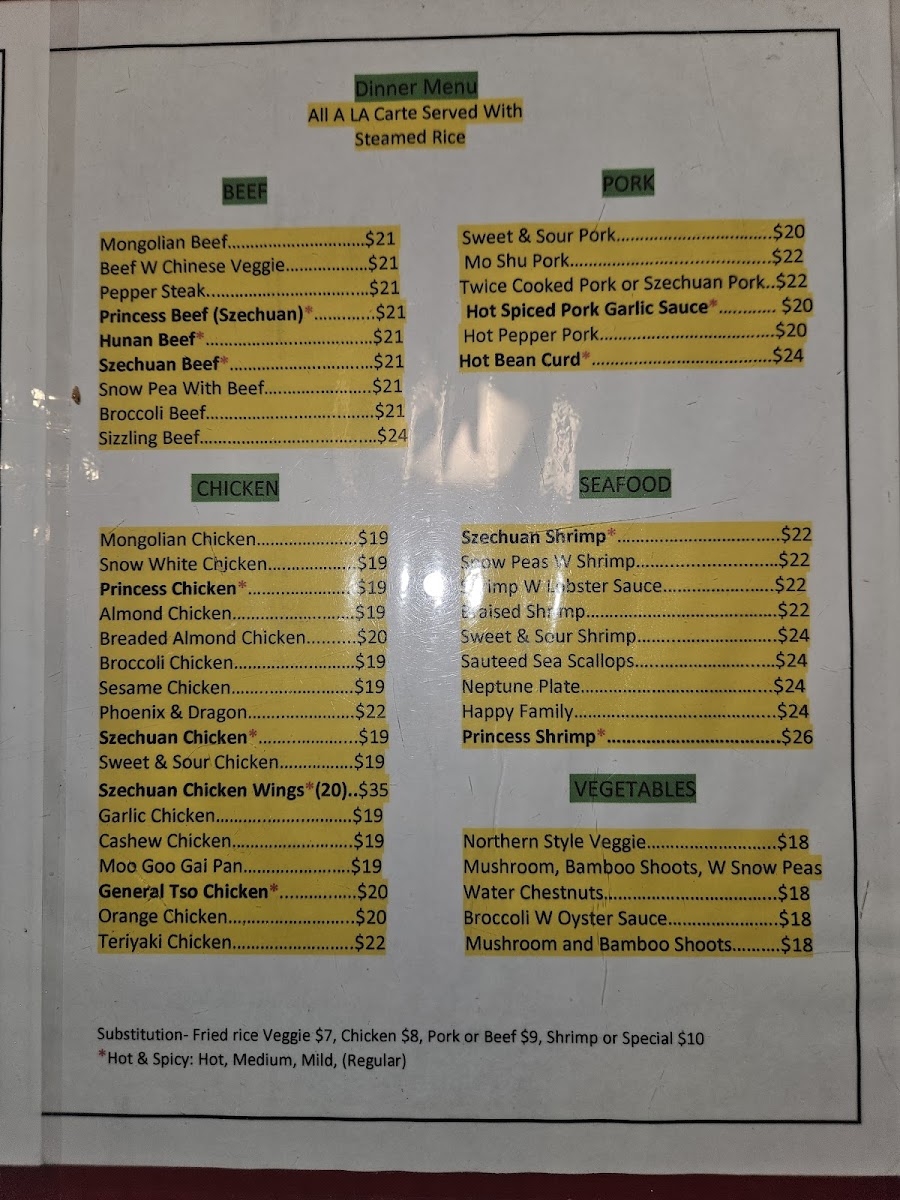 Dinner Menu
All A LA Carte Served With
Steamed Rice
BEEF
Mongolian Beef..............................$21
Beef W Chinese Veggie..................$21
Pepper Steak...................................$21
Princess Beef (Szechuan)*.............$21
Hunan Beef*...................................$21
Szechuan Beef*...............................$21
Snow Pea With Beef.......................$21
Broccoli Beef...................................$21
Sizzling Beef.....................................$24
PORK
Sweet & Sour Pork.................................$20
Mo Shu Pork..........................................$22
Twice Cooked Pork or Szechuan Pork..$22
Hot Spiced Pork Garlic Sauce*............ $20
Hot Pepper Pork....................................$20
Hot Bean Curd*......................................$24
CHICKEN
Mongolian Chicken.....................$19
Snow White Chicken...................$19
Princess Chicken*.......................$19
Almond Chicken..........................$19
Breaded Almond Chicken..........$20
Broccoli Chicken.........................$19
Sesame Chicken..........................$19
Phoenix & Dragon.......................$22
Szechuan Chicken*.....................$19
Sweet & Sour Chicken................$19
Szechuan Chicken Wings*(20)..$35
Garlic Chicken.............................$19
Cashew Chicken..........................$19
Moo Goo Gai Pan.......................$19
General Tso Chicken*................$20
Orange Chicken..........................$20
Teriyaki Chicken..........................$22
SEAFOOD
Szechuan Shrimp*....................................$22
Snow Peas W Shrimp...............................$22
Shrimp W Lobster Sauce.........................$22
Braised Shrimp.........................................$22
Sweet & Sour Shrimp..............................$24
Sauteed Sea Scallops...............................$24
Neptune Plate..........................................$24
Happy Family............................................$24
Princess Shrimp*......................................$26
VEGETABLES
Northern Style Veggie............................$18
Mushroom, Bamboo Shoots, W Snow Peas
Water Chestnuts.....................................$18
Broccoli W Oyster Sauce........................$18
Mushroom and Bamboo Shoots..........$18
Substitution- Fried rice Veggie $7, Chicken $8, Pork or Beef $9, Shrimp or Special $10
*Hot & Spicy: Hot, Medium, Mild, (Regular)